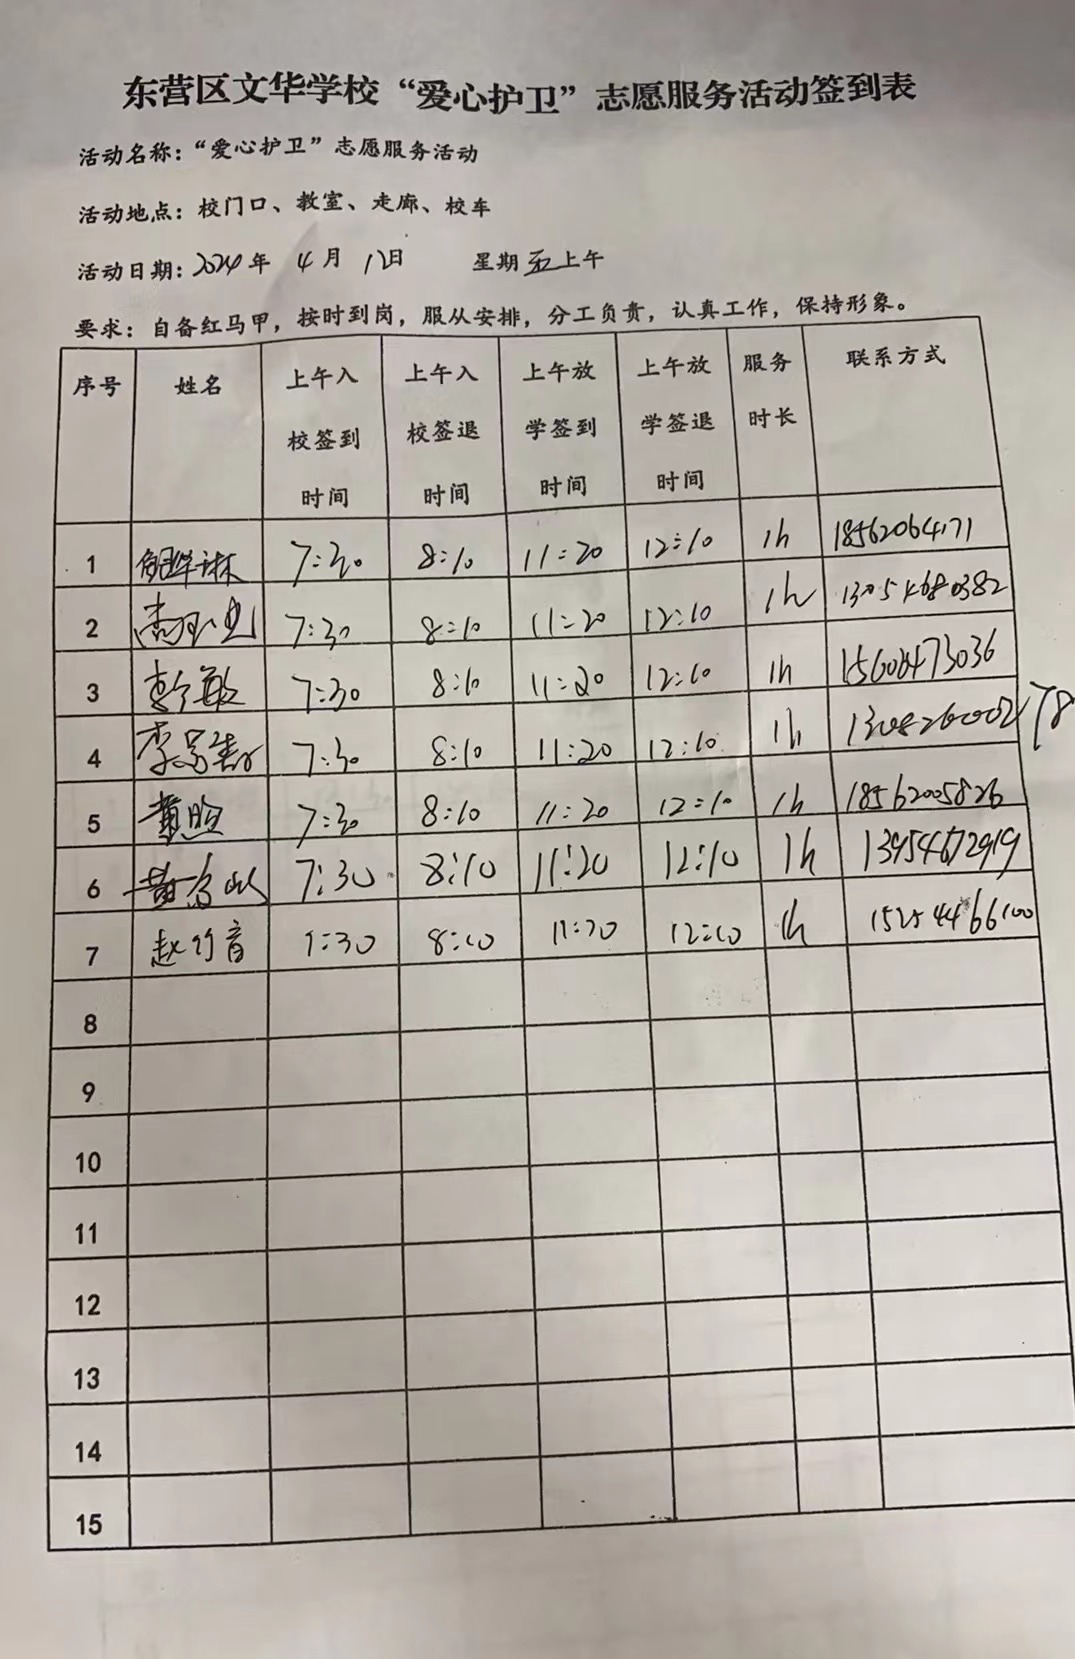 东营区文华学校“爱心护卫”志愿服务活动签到表
活动名称：“爱心护卫”志愿服务活动
活动地点：校门口、教室、走廊、校车
活动日期：2024年 4月 12日 星期五上午
要求：自备红马甲，按时到岗，服从安排，分工负责，认真工作，保持形象。
序号 姓名 上午入校签到时间 上午入校签退时间 上午放学签到时间 上午放学签退时间 服务时长 联系方式
1 7:30 8:10 11:20 12:10 1h 18562064171
2 7:30 8:10 11:20 12:10 1h 13054680382
3 7:30 8:10 11:20 12:10 1h 15606473036
4 7:30 8:10 11:20 12:10 1h
5 黄煦 7:30 8:10 11:20 12:10 1h 18562005826
6 7:30 8:10 11:20 12:10 1h 13954672919
7 赵竹音 7:30 8:10 11:20 12:10 1h 15254466100
8
9
10
11
12
13
14
15